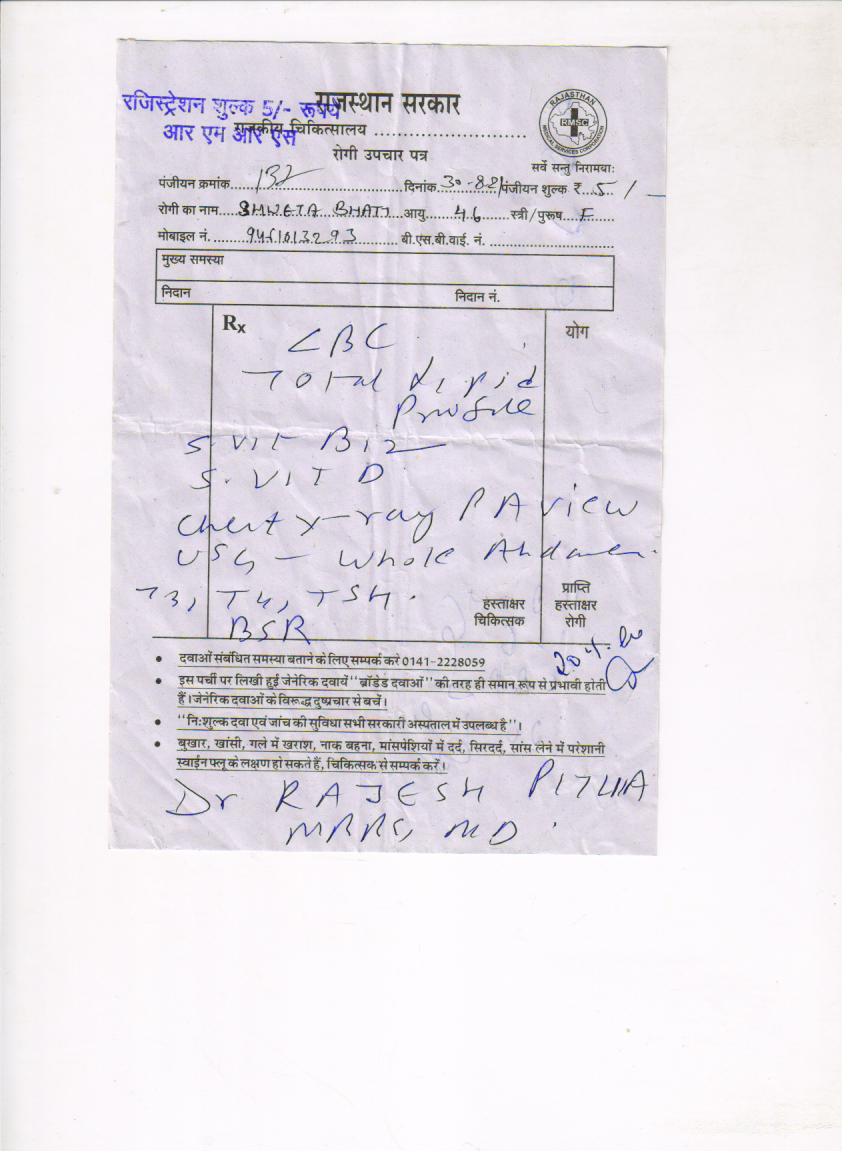 रजिस्ट्रेशन शुल्क 5/- रूपये
राजस्थान सरकार
आर एम आर एस
राजकीय चिकित्सालय ..............................
रोगी उपचार पत्र
RAJASTHAN
RMSC
MEDICAL SERVICES CORPORATION
सर्वे सन्तु निरामयाः
पंजीयन क्रमांक 132 दिनांक 30-8-21 पंजीयन शुल्क ₹ 5/-
रोगी का नाम SHWETA BHATI आयु 46 स्त्री/पुरूष F
मोबाइल नं. बी.एस.बी.वाई. नं.
मुख्य समस्या
निदान निदान नं.
Rx योग
CBC
Total Lipid
Profile
S. VIT B12
S. VIT D
Chest X-ray PA View
USG - Whole Abdomen
T3, T4, TSH.
BSR
हस्ताक्षर चिकित्सक
प्राप्ति हस्ताक्षर रोगी
• दवाओं संबंधित समस्या बताने के लिए सम्पर्क करे 0141-2228059
• इस पर्ची पर लिखी हुई जेनेरिक दवायें "ब्रांडेड दवाओं" की तरह ही समान रूप से प्रभावी होती
हैं। जेनेरिक दवाओं के विरूद्ध दुष्प्रचार से बचें।
• "निःशुल्क दवा एवं जांच की सुविधा सभी सरकारी अस्पताल में उपलब्ध है"।
• बुखार, खांसी, गले में खराश, नाक बहना, मांसपेशियों में दर्द, सिरदर्द, सांस लेने में परेशानी
स्वाईन फ्लू के लक्षण हो सकते हैं, चिकित्सक से सम्पर्क करें।
Dr RAJESH
MBBS, MD.